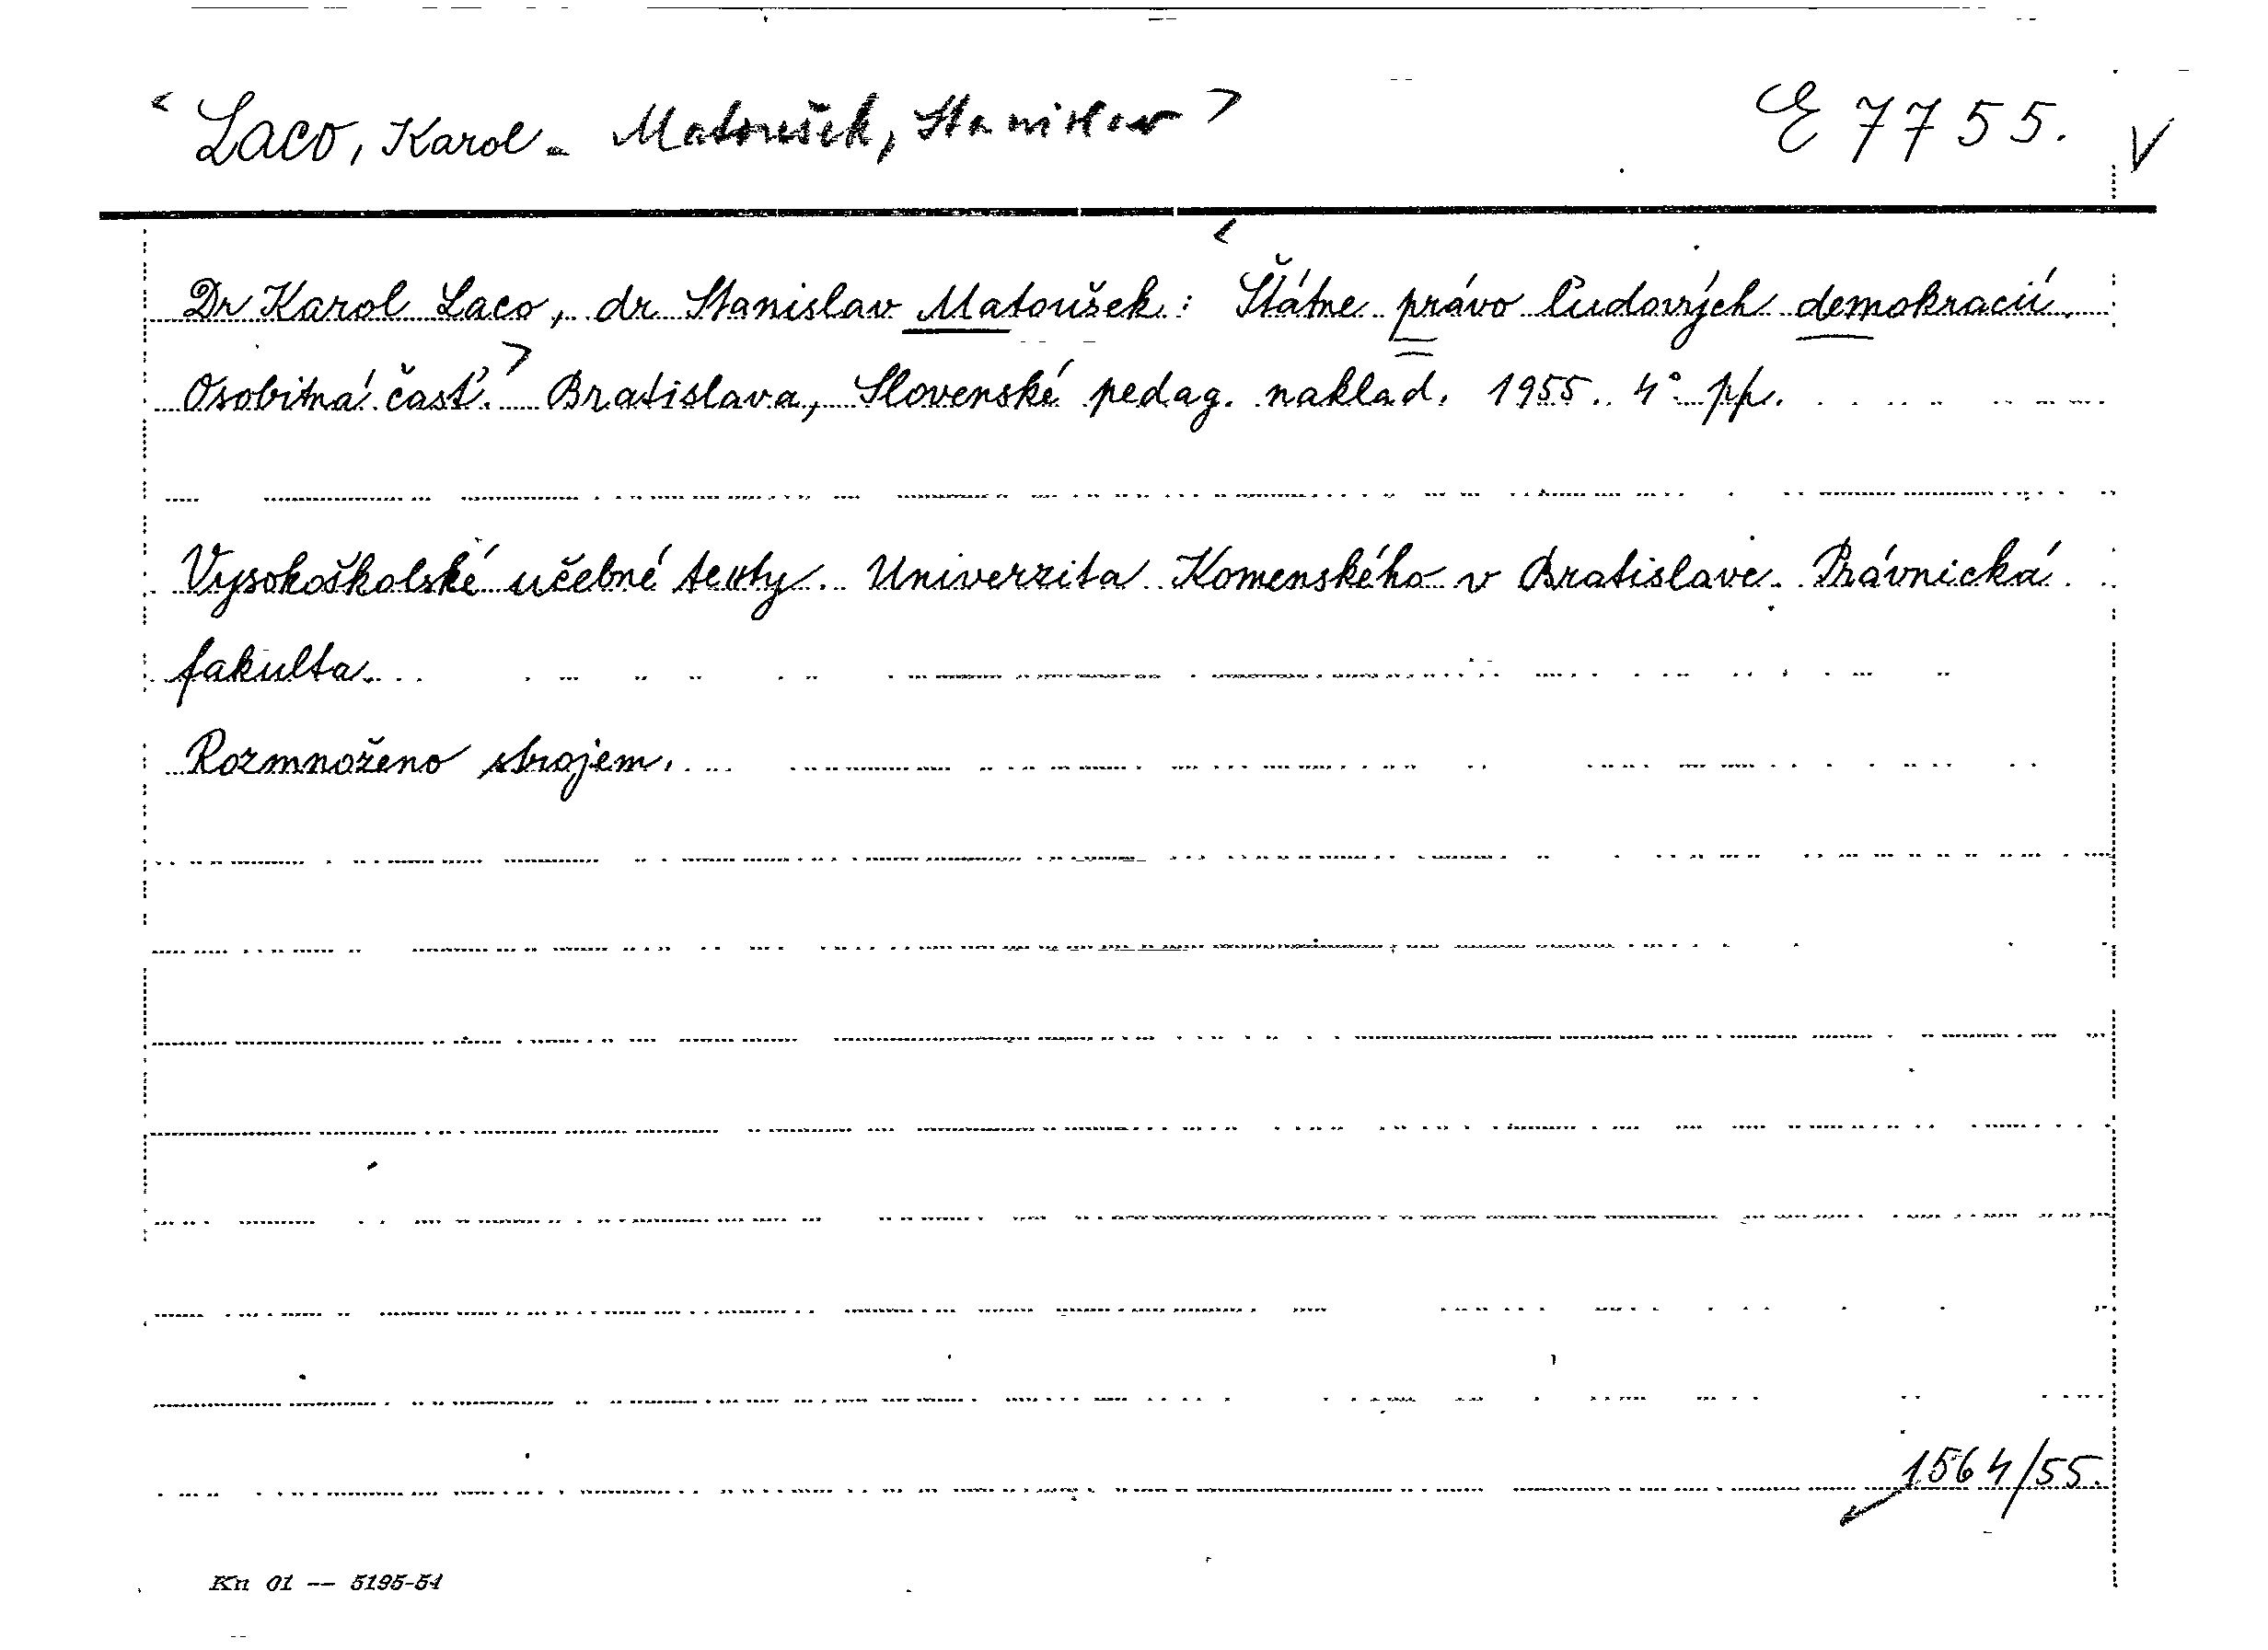 < Laco, Karol - Matoušek, Stanislav > E 7755. V
Dr Karol Laco, dr Stanislav Matoušek: < Štátne právo ľudových demokracií.
Osobitná časť. > Bratislava, Slovenské pedag. naklad. 1955. 4° pp.
Vysokoškolské učebné texty. Univerzita Komenského v Bratislave. Právnická
fakulta.
Rozmnoženo strojem.
1564/55.
Kn 01 -- 5195-54